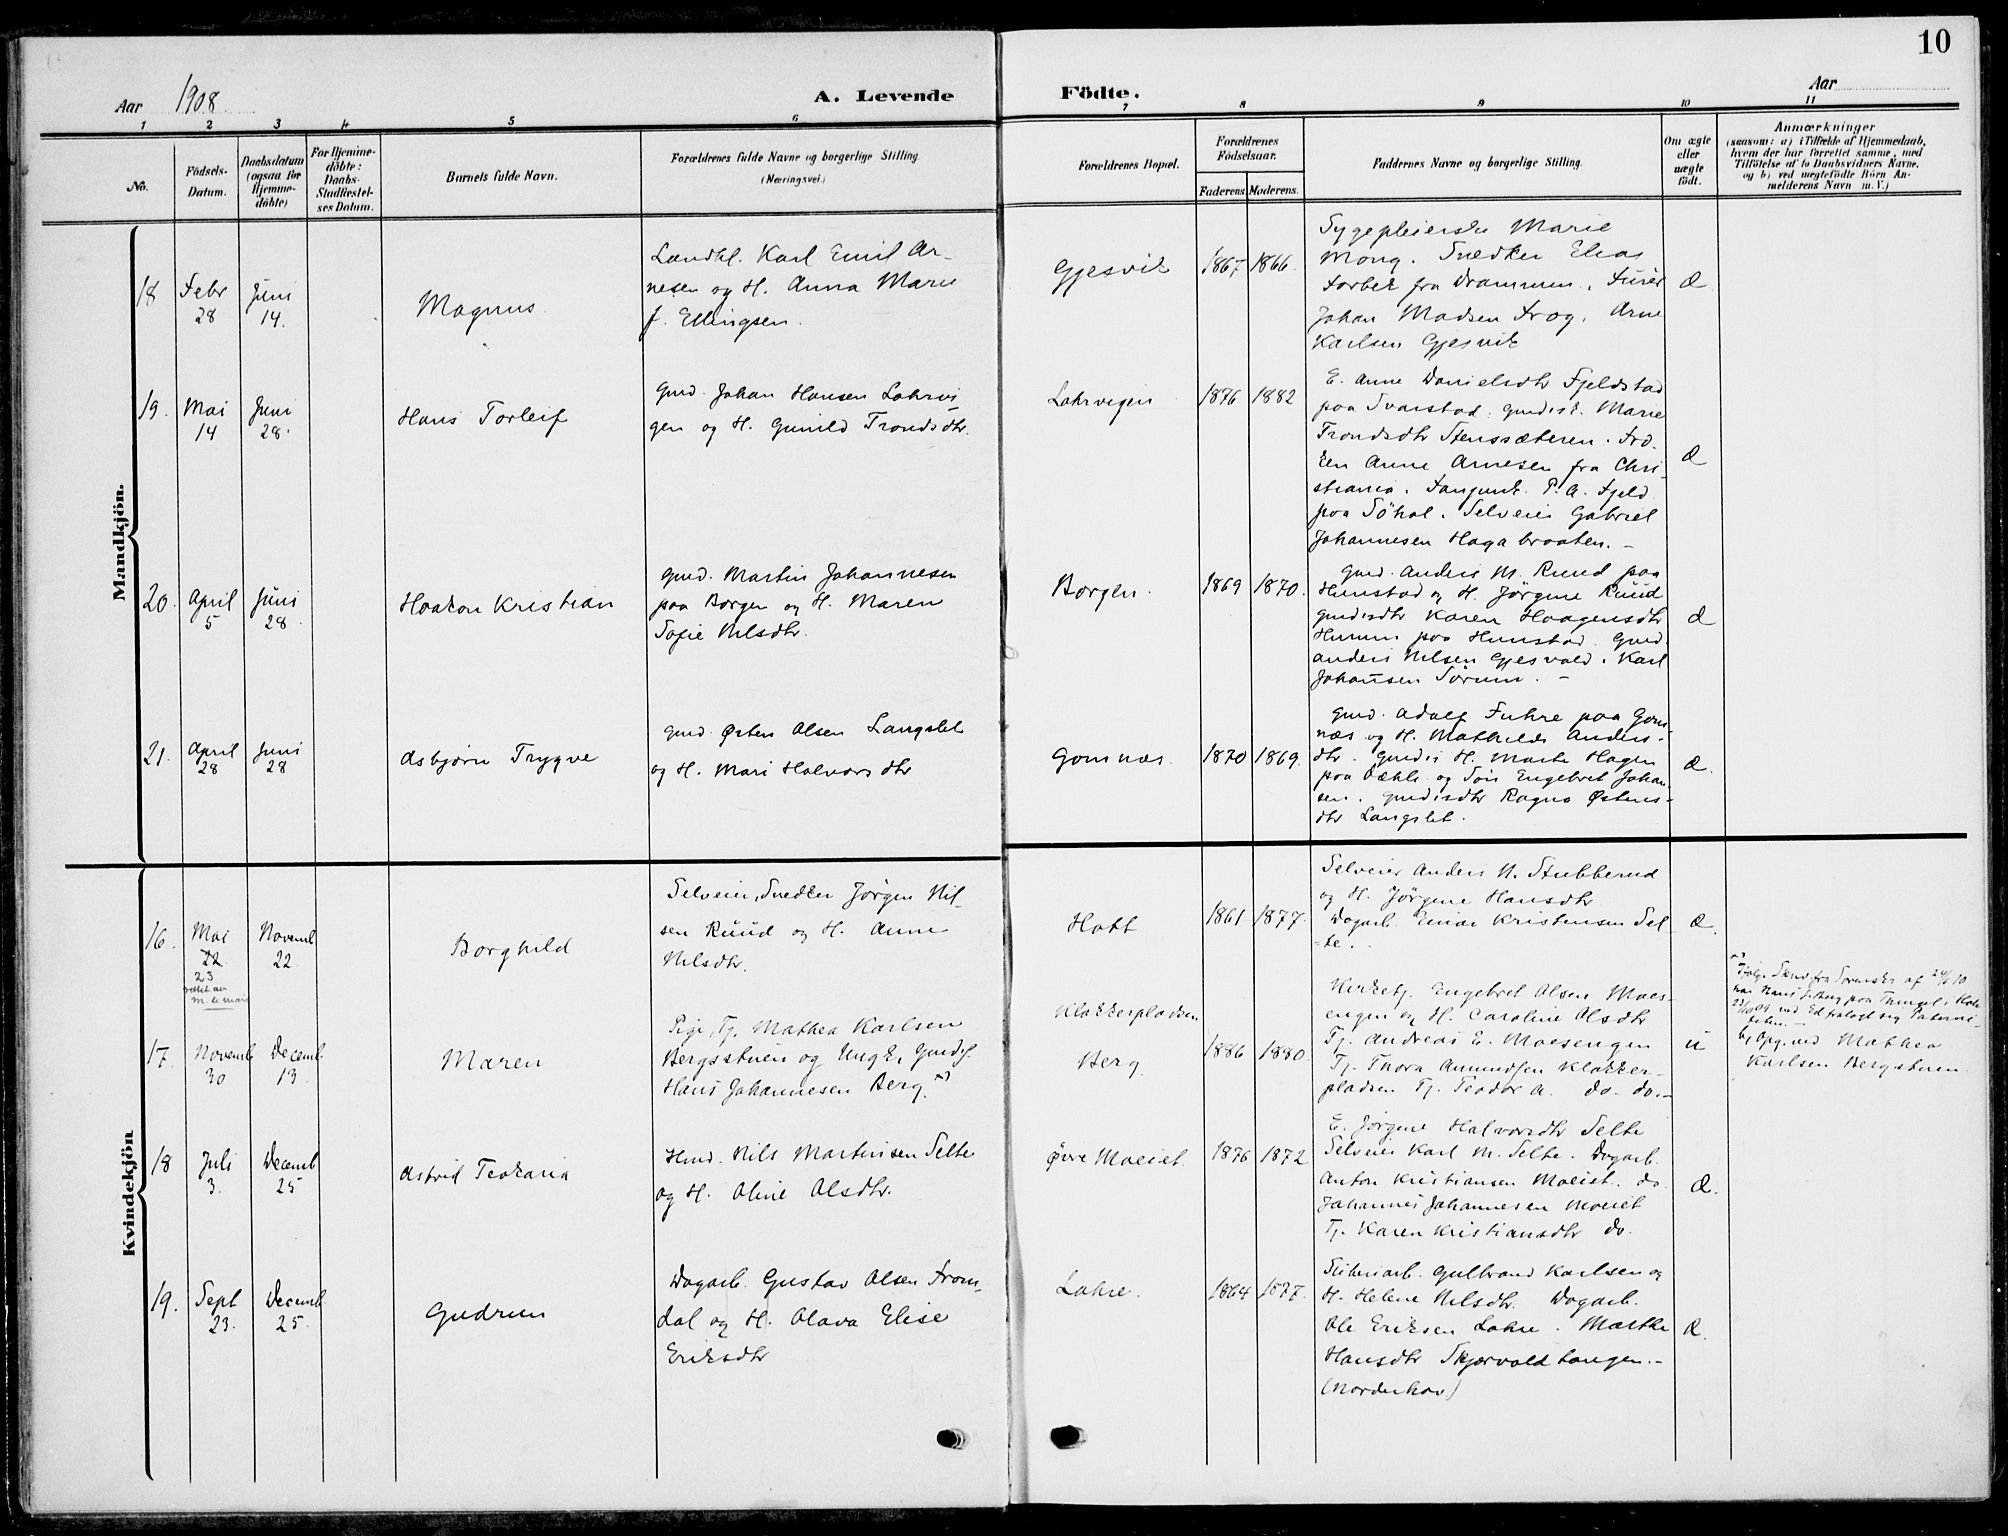 10
Aar 1908
A. Levende Födte.
Aar
1 2 3 4 5 6 7 8 9 10 11
No.
Födsels-
Datum.
Daabsdatum
(ogsaa for
Hjemme-
döbte)
For Hjemme-
döbte:
Daabs-
Stadfæstel-
ses Datum.
Barnets fulde Navn.
Forældrenes fulde Navne og borgerlige Stilling
(Næringsvei.)
Forældrenes Bopæl.
Forældrenes
Födselsaar.
Faderens. Moderens.
Faddernes Navne og borgerlige Stilling.
Om ægte
eller
uægte
födt.
Anmærkninger
(saasom: a) i Tilfælde af Hjemmedaab,
hvem der har forrettet samme, med
Tilföielse af to Daabsvidners Navne,
og b) ved uægtefödte Börn An-
melderens Navn m. V.)
Mandkjön.
18
Febr
28
Juni
14.
Magnus
Landhl. Karl Emil Ar-
nesen og H. Anna Marie
f. Ellingsen.
Gjesvik
1867 1866.
Sygepleierske Marie
Mong. Snedker Elias
Torbek fra Drammen.
Johan Madsen Frog. Arne
Karlsen Gjesvik
Æ
19.
Mai
14
Juni
28.
Hans Torleif
Gmd. Johan Hansen Lohrvi
gen og H. Gunild Trondsdtr.
Lohrvigen
1876 1882
E. Anne Danielsdtr Fjeldstad
paa Svarstad. Gmdsk. Marie
Trondsdtr Stenssæteren. Frö-
ken Anne Arnesen fra Chri
stiania. P. A. Fjeld
paa Söhol. Selveier Gabriel
Johannesen Hagabraaten. -
Æ
20.
April
5
Juni
28
Haakon Kristian
Gmd. Martin Johannesen
paa Borgen og H. Maren
Sofie Nilsdtr.
Borgen.
1869 1870.
Gmd. Anders M. Ruud paa
Hunstad og H. Jörgine Ruud
Gmdsdtr Karen Haagensdtr
Hunum paa Hunstad. Gmd.
Anders Nilsen Gjesvold. Karl
Johansen Sörum. -
Æ
21.
April
28
Juni
28
Asbjørn Trygve
Gmd. Østen Olsen Langslet
og H. Mari Halvorsdtr
Gomnæs.
1870 1869.
Gmd. Adolf Fuhre paa Gom
næs og H. Mathilde Anders-
dtr. Gmds H. Marte Hagen
paa Dæhli og Søn Engebret Johan
sen. Gmdsdtr Ragna Østens-
dtr Langslet.
Æ.
Kvindekjön
16.
Mai
22.
23
rettet av
m.
Novemb
22.
Borghild
Selveier, Snedker Jørgen Nil-
sen Ruud og H. Anne
Nilsdtr.
Hatt
1861 1877.
Selveier Anders N. Stubberud
og H. Jörgine Hansdtr
Dagarb. Einar Kristensen Sel
te.
Æ.
17.
Novemb
30
Decemb.
13
Maren
Pige, Tj. Mathea Karlsen
Bergsstuen og Ungk, Gmdsf.
Hans Johannesen Berg. x)
Klokkerpladsen
Berg
1886 1880.
Kirketj. Engebret Olsen Moes-
engen og H. Caroline Olsdtr
Tj. Andreas E. Moesengen
Tj. Thora Amundsen Klokker-
pladsen Tj. Teodor A. do. do. -
u
x)
Ifølge Skriv. fra Sorensk. af 24/8 10
har Hans J. Berg paa
23/10 09 med Ed fralagt sig Paterni-
teten. -
b, Opg. ved Mathea
Karlsen Bergstuen
18
Juli
3.
Decemb
25
Astrid Teokaria
Hmd. Nils Martinsen Selte
og H. Oline Olsdtr.
Øvre Moeiet.
1876 1872
E. Jörgine Halvorsdtr Selte
Selveier Karl M. Selte. Dagarb.
Anton Kristiansen Moeiet. do.
Johannes Johannesen Moeiet
Tj. Karen Kristiansdtr do.
Æ.
19.
Sept
23.
Decemb.
25.
Gudrun
Dagarb. Gustav Olsen From-
dal og H. Olava Elise
Eriksdtr
Lohre.
1864 1877.
Sliberiarb. Gulbrand Karlsen og
H. Helene Nilsdtr. Dagarb.
Ole Eriksen Lohre. Marthe
Hansdtr Skjærvoldtangen. -
(Norderhov)
Æ.